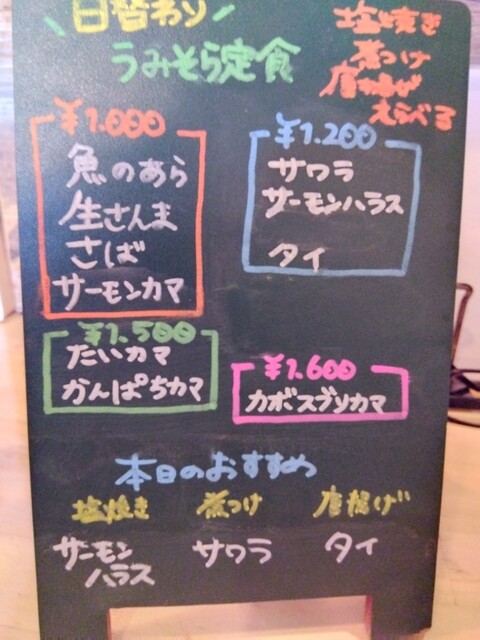 日替わり
うみそら定食
塩焼き
煮つけ
唐揚げ
えらべる
¥1.000
魚のあら
生さんま
さば
サーモンカマ
¥1.200
サワラ
サーモンハラス
タイ
¥1.500
たいカマ
かんぱちカマ
¥1.600
カボスブリカマ
本日のおすすめ
塩焼き 煮つけ 唐揚げ
サーモン
ハラス
サワラ
タイ